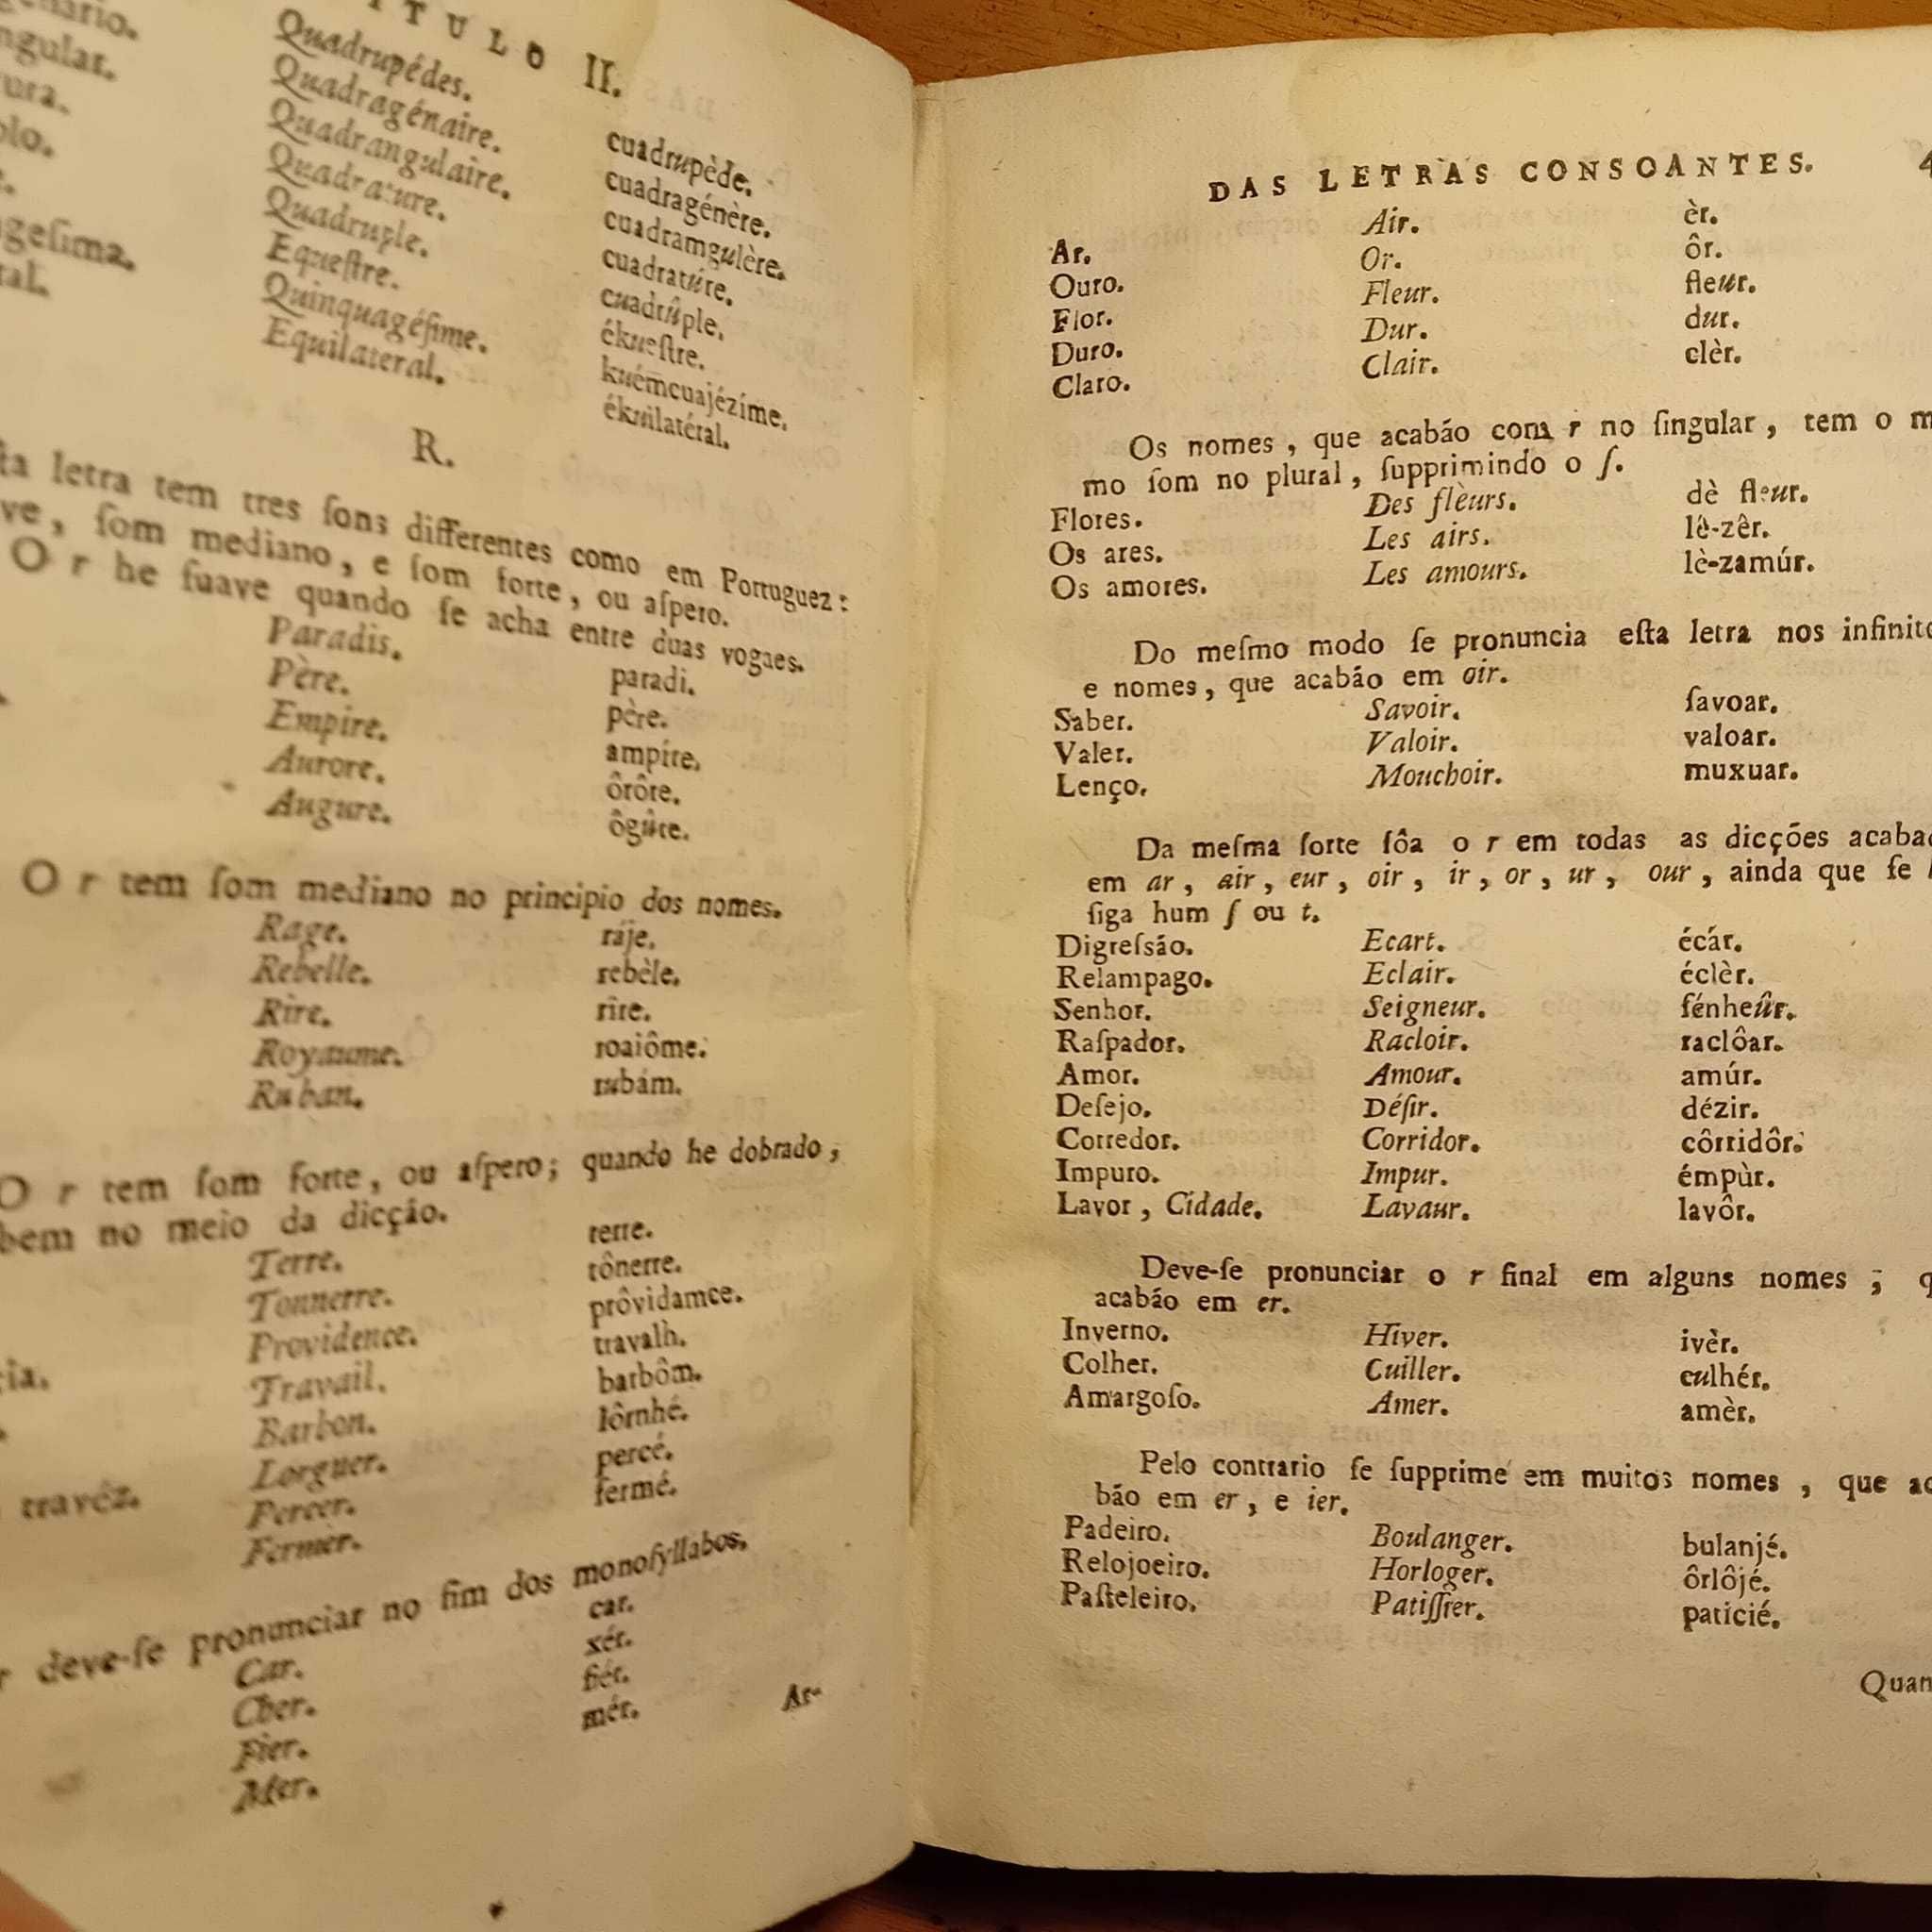 TULO II.
Quadrupédes. cuadrupède.
ngular. Quadragénaire. cuadragénère.
Quadrangulaire. cuadramgulère.
Quadrature. cuadratúre.
Quadruple. cuadrûple.
geſima. Equeſtre. ékueſtre.
Quinquagéſime. kuémcuajézíme.
Equilateral. ékuilatéral.
R.
ſta letra tem tres ſons differentes como em Portuguez:
ve, ſom mediano, e ſom forte, ou aſpero.
O r he ſuave quando ſe acha entre duas vogaes.
Paradis. paradi.
Père. père.
Empire. ampíre.
Aurore. ôrôre.
Augure. ôgûre.
O r tem ſom mediano no principio dos nomes.
Rage. ráje.
Rebelle. rebèle.
Rire. rire.
Royaume. roaiôme.
Ruban. rubám.
O r tem ſom forte, ou aſpero; quando he dobrado,
bem no meio da dicção.
Terre. terre.
Tonnerre. tônerre.
Providence. prôvidamce.
cia. Travail. travalh.
Barbon. barbôm.
Lorgner. lôrnhé.
travéz. Percer. percé.
Fermer. fermé.
r deve-ſe pronunciar no fim dos monoſyllabos.
Car. car.
Cher. xér.
Fier. fiér.
Mer. mér.
Ar-
DAS LETRAS CONSOANTES. 4
Ar. Air. èr.
Ouro. Or. ôr.
Flor. Fleur. fleur.
Duro. Dur. dur.
Claro. Clair. clèr.
Os nomes, que acabáo com r no ſingular, tem o m
mo ſom no plural, ſupprimindo o ſ.
Flores. Des flèurs. dè fleur.
Os ares. Les airs. lè-zêr.
Os amores. Les amours. lè-zamúr.
Do meſmo modo ſe pronuncia eſta letra nos infinito
e nomes, que acabáo em oir.
Saber. Savoir. ſavoar.
Valer. Valoir. valoar.
Lenço. Mouchoir. muxuar.
Da meſma ſorte ſôa o r em todas as dicções acaba
em ar, air, eur, oir, ir, or, ur, our, ainda que ſe
ſiga hum ſ ou t.
Digreſsáo. Ecart. écár.
Relampago. Eclair. éclèr.
Senhor. Seigneur. ſénheûr.
Raſpador. Racloir. raclôar.
Amor. Amour. amúr.
Deſejo. Déſir. dézir.
Corredor. Corridor. côrridôr.
Impuro. Impur. émpùr.
Lavor, Cidade. Lavaur. lavôr.
Deve-ſe pronunciar o r final em alguns nomes, q
acabáo em er.
Inverno. Hiver. ivèr.
Colher. Cuiller. culhér.
Amargoſo. Amer. amèr.
Pelo contrario ſe ſupprime em muitos nomes, que ac
báo em er, e ier.
Padeiro. Boulanger. bulanjé.
Relojoeiro. Horloger. ôrlôjé.
Paſteleiro. Patiſſier. paticié.
Quan